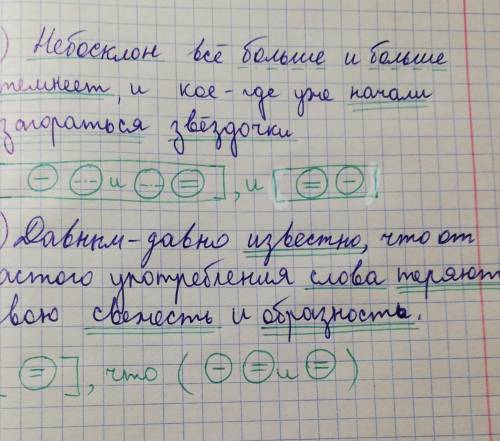 ) Небосклон всё больше и больше
темнеет, и кое-где уже начали
загораться звёздочки
[ - и = ], и [ = - ]
) Давным-давно известно, что от
астого употребления слова теряют
вою свежесть и образность.
[ = ], что ( - = и = )